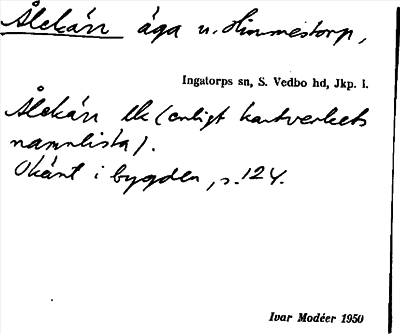 Ålekärr äga u. Himmestorp,
Ingatorps sn, S. Vedbo hd, Jkp. l.
Ålekärr lk (enligt kartverkets
namnlista).
Okänt i bygden, s. 124.
Ivar Modéer 1950